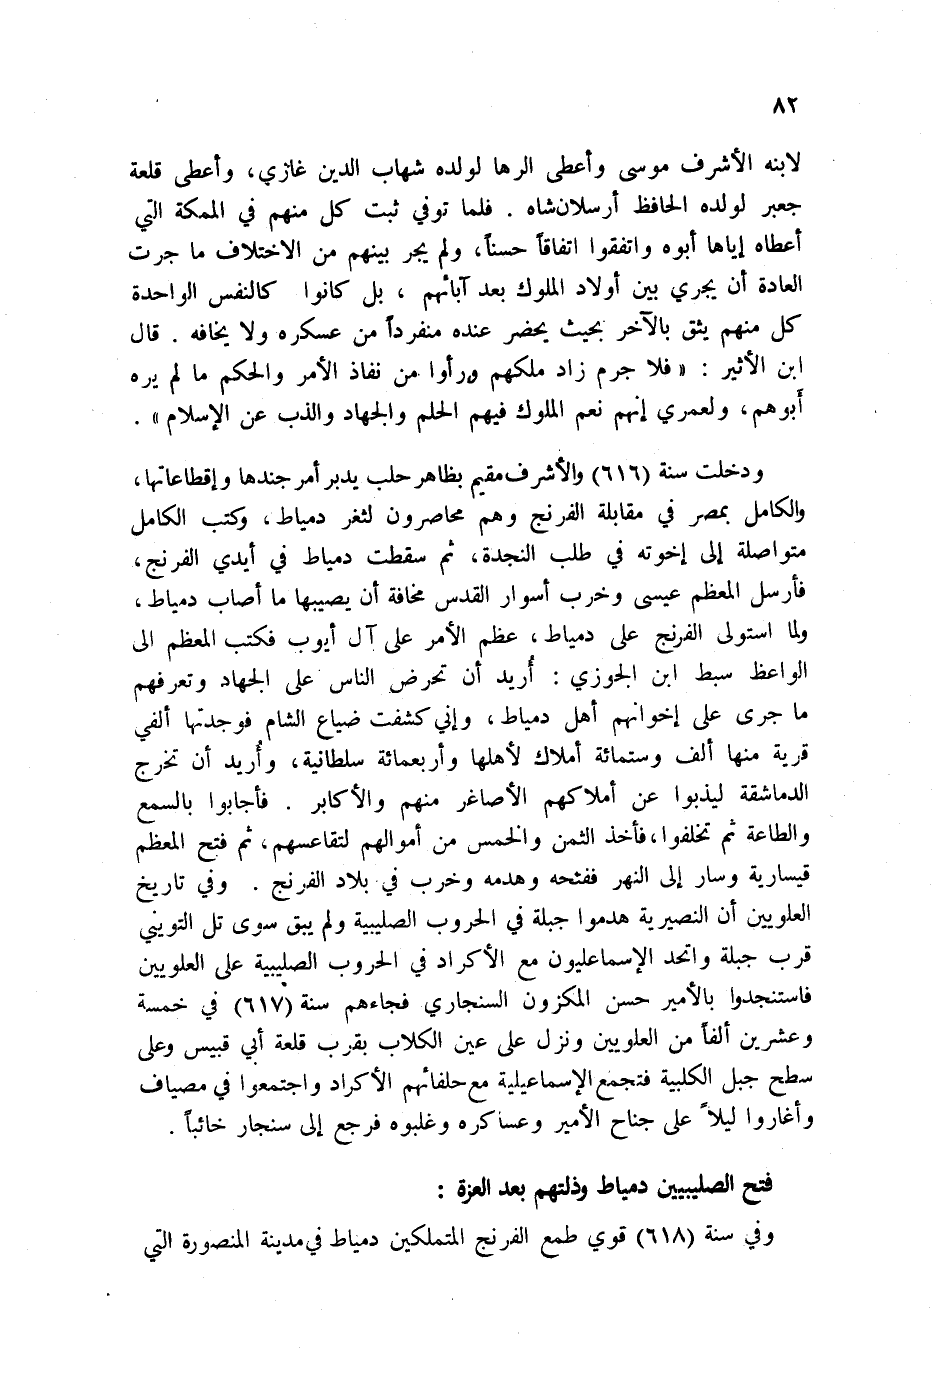 ٨٢
لابنه الأشرف موسى وأعطى الرها لولده شهاب الدين غازي، وأعطى قلعة
جعبر لولده الحافظ أرسلان‌شاه . فلما توفي ثبت كل منهم في الممكة التي
أعطاه إياها أبوه واتفقوا اتفاقاً حسناً، ولم يجر بينهم من الاختلاف ما جرت
العادة أن يجري بين أولاد الملوك بعد آبائهم ، بل كانوا كالنفس الواحدة
كل منهم يثق بالآخر بحيث يحضر عنده منفرداً من عسكره ولا يخافه . قال
ابن الأثير : « فلا جرم زاد ملكهم ورأوا من نفاذ الأمر والحكم ما لم يره
أبوهم، ولعمري إنهم نعم الملوك فيهم الحلم والجهاد والذب عن الإسلام » .
ودخلت سنة (٦١٦) والأشرف مقيم بظاهر حلب يدبر أمر جندها وإقطاعاتها،
والكامل بمصر في مقابلة الفرنج وهم محاصرون لثغر دمياط، وكتب الكامل
متواصلة إلى إخوته في طلب النجدة، ثم سقطت دمياط في أيدي الفرنج،
فأرسل المعظم عيسى وخرب أسوار القدس مخافة أن يصيبها ما أصاب دمياط،
ولما استولى الفرنج على دمياط، عظم الأمر على آل أيوب فكتب المعظم الى
الواعظ سبط ابن الجوزي : أُريد أن تحرض الناس على الجهاد وتعرفهم
ما جرى على إخوانهم أهل دمياط، وإني كشفت ضياع الشام فوجدتها ألفي
قرية منها ألف وستمائة أملاك لأهلها وأربعمائة سلطانية، وأُريد أن تخرج
الدماشقة ليذبوا عن أملاكهم الأصاغر منهم والأكابر . فأجابوا بالسمع
والطاعة ثم تخلفوا، فأخذ الثمن والخمس من أموالهم لتقاعسهم، ثم فتح المعظم
قيسارية وسار إلى النهر ففتحه وهدمه وخرب في بلاد الفرنج . وفي تاريخ
العلويين أن النصيرية هدموا جبلة في الحروب الصليبية ولم يبق سوى تل التويني
قرب جبلة واتحد الإسماعليون مع الأكراد في الحروب الصليبية على العلويين
فاستنجدوا بالأمير حسن المكزون السنجاري فجاءهم سنة (٦١٧) في خمسة
وعشرين ألفاً من العلويين ونزل على عين الكلاب بقرب قلعة أبي قبيس وعلى
سطح جبل الكلبية فتجمع الإسماعيلية مع حلفائهم الأكراد واجتمعوا في مصياف
وأغاروا ليلاً على جناح الأمير وعساكره وغلبوه فرجع إلى سنجار خائباً .
فتح الصليبيين دمياط وذلتهم بعد العزة :
وفي سنة (٦١٨) قوي طمع الفرنج المتملكين دمياط في مدينة المنصورة التي